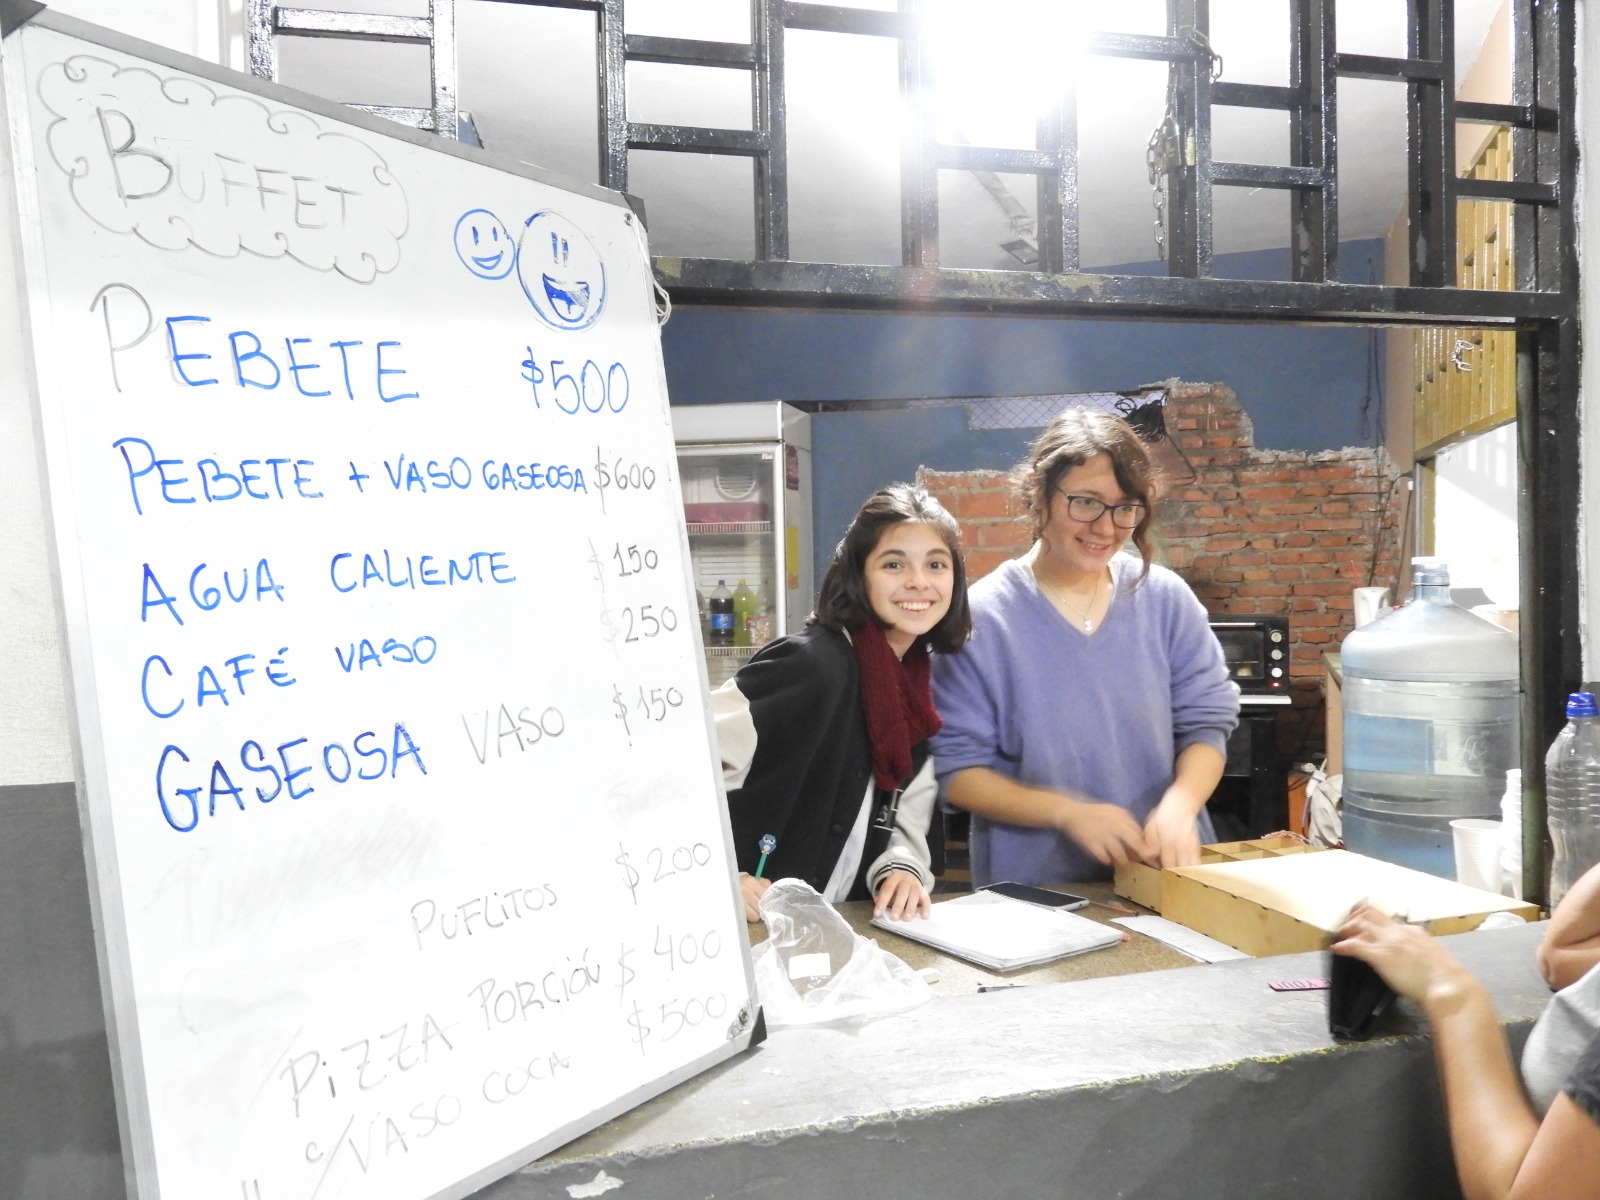 BUFFET
PEBETE $500
PEBETE + VASO GASEOSA $600
AGUA CALIENTE $150
CAFÉ VASO $250
GASEOSA VASO $150
PUFLITOS $200
PIZZA PORCIÓN $400
" c/VASO COCA $500